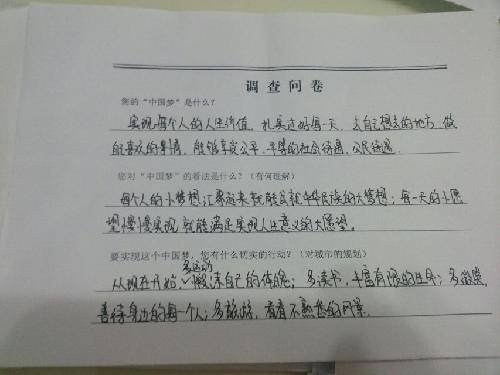 调查问卷
您的“中国梦”是什么?
实现每个人的人生价值,扎实过好每一天,去自己想去的地方,做
自己喜欢的事情,能够享受公平、平等的社会待遇、公民待遇。
您对“中国梦”的看法是什么?(有何理解)
每个人的小梦想汇聚起来就能成就中华民族的大梦想;每一天的小愿
望慢慢实现就能满足实现人生意义的大愿望。
要实现这个中国梦,您有什么切实的行动?(对城市的规划)
多运动
从现在开始,锻炼自己的体魄;多读书,丰富有限的生命;多微笑,
善待身边的每一个人;多旅游,看看不熟悉的风景。